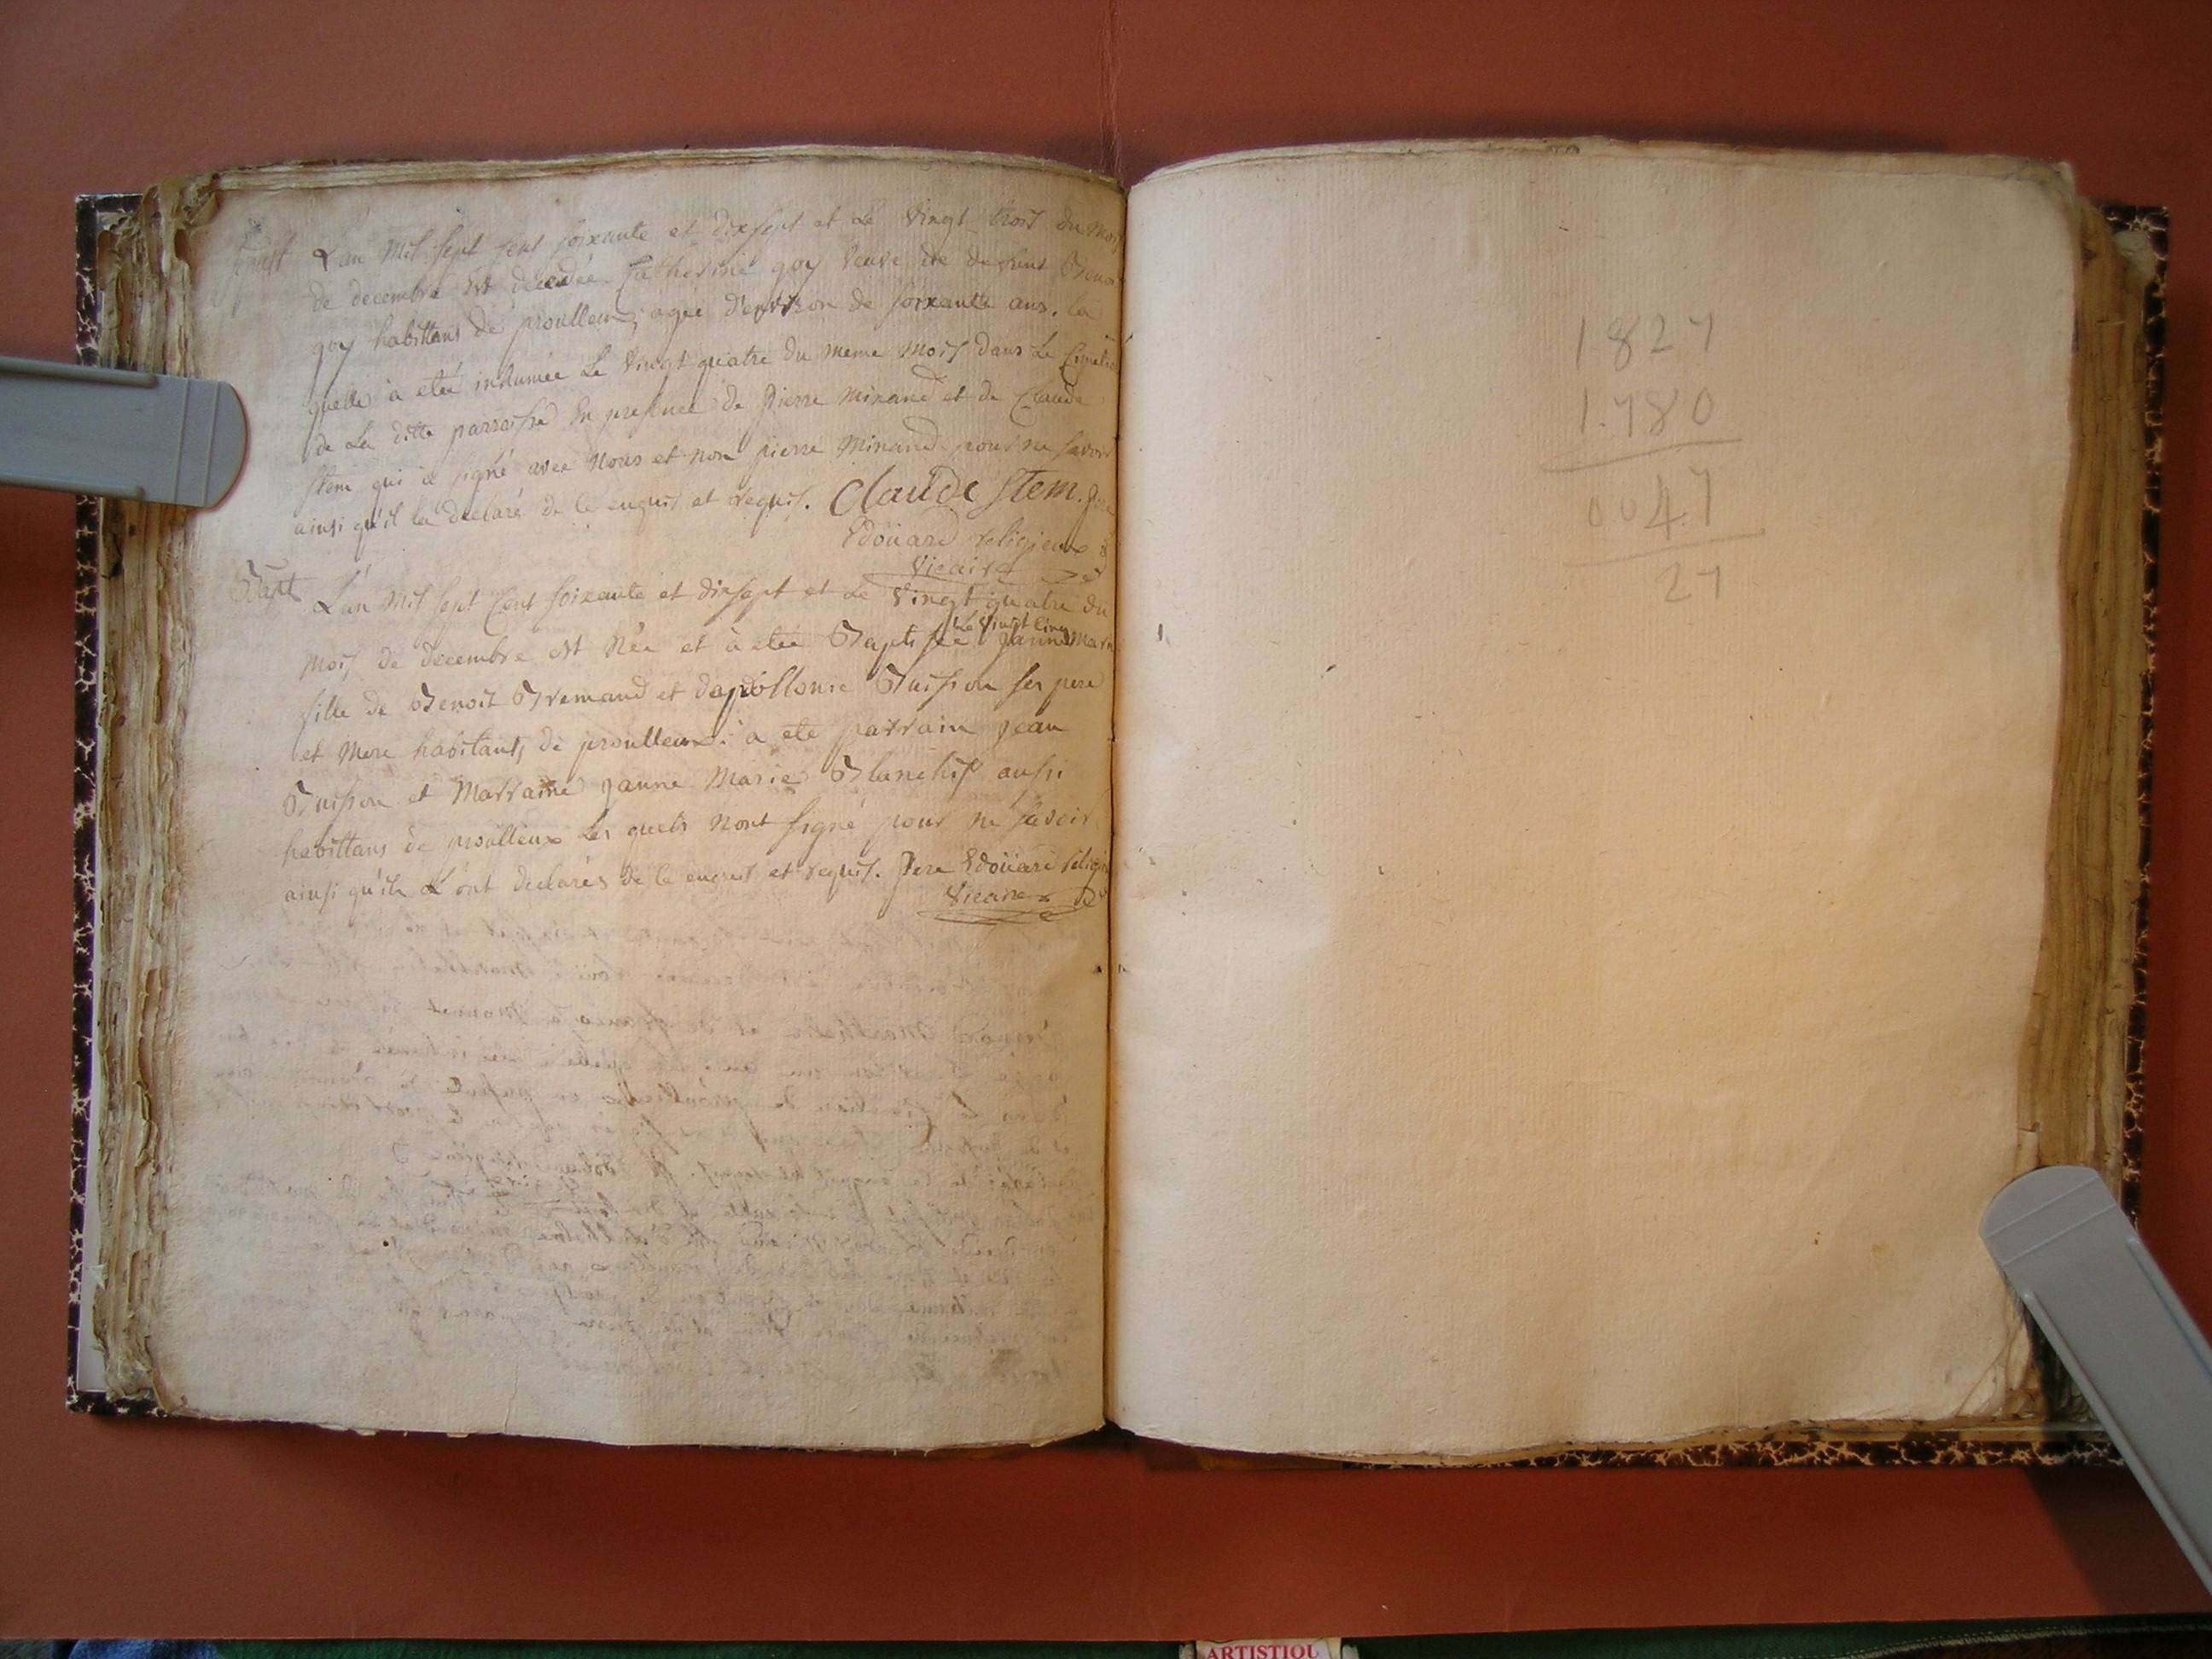 L'an mil sept sent soixante et dixsept et Le vingt trois du mois
de decembre Est décedée Catherine goy veuve de defunt Benoit
goy habittans de proulleux, agée d'environ de soixante ans. la
quelle a eteé inhumée Le vingt quatre du meme mois dans Le Cimetiere
de La ditte parroisse En presence de Pierre Minand et de Claude
Stem qui a signé avec nous et non pierre Minand pour ne savoir
ainsi qu'il la declaré de le enquis et requis. Claude Stem. Pere
Edoüard religieux
Vicaire
Bapt L'an mil sept Cent soixante et dixsept et Le vingt quatre du
Le vingt cinq
mois de decembre est Née et à eteé Baptisée Janne Marie
fille de Benoit Bremand et dapollonie Buisson ses pere
et Mere habitants de proulleux: a ete parrain Jean
Buisson et Marraine Janne Marie Blanchis aussi
habittans de proulleux Les quels nont signé pour ne savoir
ainsi qu'ils L'ont declarés de le enquis et requis. Pere Edoüard religieux
Vicaire
1827
1.780
0047
27
ARTISTIQU